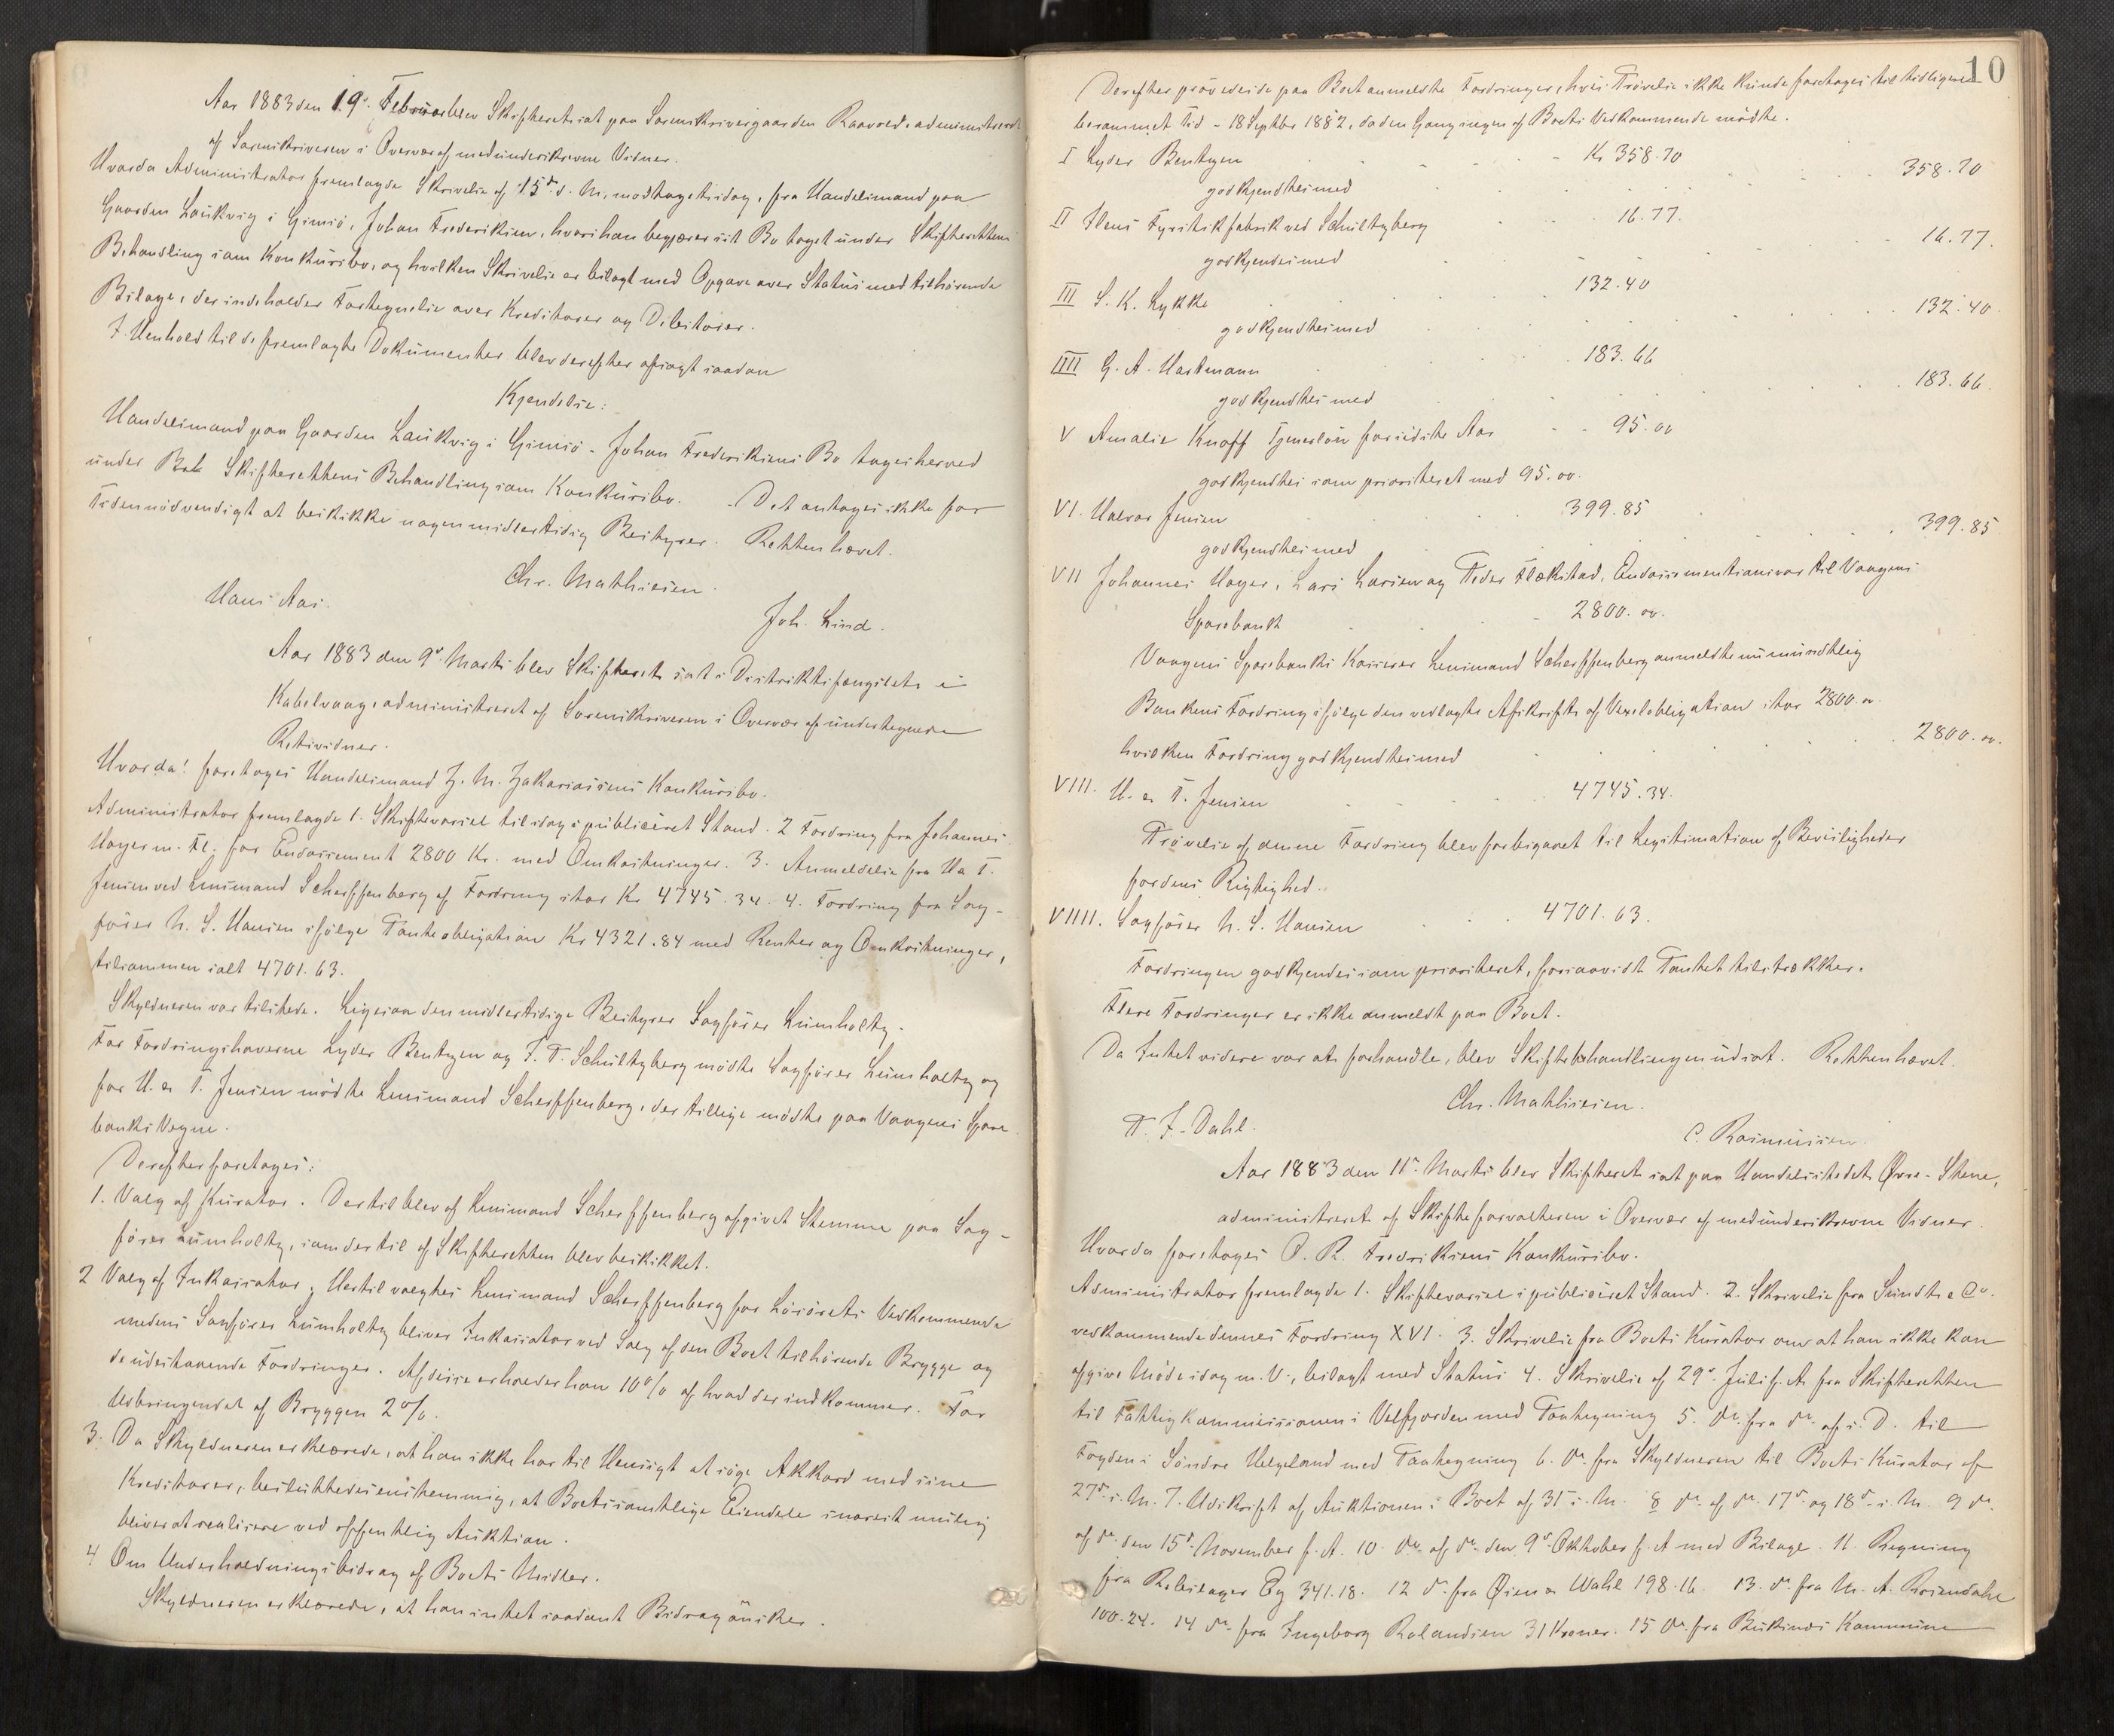 Aar 1883 den 19de Februar blev Skifteret sat paa Sorenskrivergaarden Raavoed, administreret
af Sorenskriveren i Overvær af medunderskrevne Vidner.
Hvorda Administrator fremlagde Skrivelse af 15de d. M., modtaget idag, fra Handelsmand paa
Gaarden Laukvig i Gimsö, Johan Frederiksen, hvori han begjærer sit Bo taget under Skifterettens
Behandling som Konkursbo, og hvilken Skrivelse er bilagt med Opgave over Status med tilhörende
Bilage, der indeholder Fortegnelse over Kreditorer og Debitorer.
I Henhold til de fremlagte Dokumenter blev derefter afsagt saadan
Kjendelse:
Handelsmand paa Gaarden Laukvig i Gimsö - Johan Frederiksens Bo tages herved
under Skifterettens Behandling som Konkursbo. - Det antages ikke for
Tiden nödvendigt at beskikke nogen midlertidig Bestyrer. Retten hævet.
Chr. Mathiesen.
Hans Aas.
Joh. Lind.
Aar 1883 den 9de Marts blev Skifteret sat i Distriktsfængslet i
Kabelvaag, administreret af Sorenskriveren i Overvær af undertegnede
Retsvidner.
Hvorda! foretoges Handelsmand Z. M. Zakariassens Konkursbo.
Administrator fremlagde 1. Skiftevarsel til idag i publiceret Stand. 2 Fordring fra Johannes
Hoyer m. Fl. for Endossement 2800 Kr. med Omkostninger. 3. Anmeldelse fra H. a T.
Jensen ved Lensmand Scherffenberg af Fordring stor Kr 4745.34. 4. Fordring fra Sag-
förer N. S. Hansen ifölge Panteobligation Kr 4321.84 med Renter og Omkostninger,
tilsammen ialt 4701.63.
Skyldneren var tilstede. Ligesaa den midlertidige Bestyrer Sagförer Lumholtz.
For Fordringshaverne Lyder Bentzen og J. P. Schultzberg mödte Sagförer Lumholtz og
for H. a T. Jensen mödte Lensmand Scherffenberg, der tillige mödte paa Vaagens Spare
banks Vegne.
Derefter foretoges:
1. Valg af Kurator. Dertil blev af Lensmand Scherffenberg afgivet Stemme paa Sag-
förer Lumholtz, som dertil af Skifteretten blev beskikket.
2 Valg af Inkassator. Hertil valgtes Lensmand Scherffenberg for Lösörets Vedkommende
medens Sagförer Lumholtz bliver Inkassator ved Salg af den Boet tilhörende Brygge og
de udestaaende Fordringer. Af disse erholder han 10% af hvad der indkommer. For
Udbringendet af Bryggen 2%.
3. Da Skyldneren erklærede, at han ikke har til Hensigt at söge Akkord med sine
Kreditorer, besluttedes enstemmig, at Boets samtlige Eiendele snarest mulig
bliver at realisere ved offentlig Auktion.
4 Om Underholdningsbidrag af Boets Midler.
Skyldneren erklærede, at han intet saadant Bidrag önsker.
10
Derefter prövedes de paa Boet anmeldte Fordringer, hvis Prövelse ikke kunde foretages til tidligere
berammet Tid - 18 Septbr 1882, da den Gang ingen af Boets Vedkommende mödte.
I Lyder Bentzen Kr 358.70
godkjendtes med 358.70
II Ilens Fyrstikfabrik ved Schultzberg 16.77.
godkjendtes med 16.77.
III S. K. Lykke 132.40
godkjendtes med 132.40
IIII G. A. Hartmann 183.66
godkjendtes med 183.66.
V Amalie Knoff Tjenerlön for sidste Aar 95.00
godkjendtes som prioriteret med 95.00.
VI. Halvor Jensen 399.85
godkjendtes med 399.85
VII Johannes Hoyer, Lars Larsen og Peder Flækstad, Endossementsansvar til Vaagens
Sparebank 2800.00.
Vaagens Sparebanks Kasserer Lensmand Scherffenberg anmeldte nu mundtlig
Bankens Fordring ifölge den vedlagte Afskrift af Vexelobligation stor 2800.00.
hvilken Fordring godkjendtes med 2800.00.
VIII. H. a T. Jensen 4745.34.
Prövelse af denne Fordring blev forbigaaet til Legitimation af Bevisligheder
for dens Rigtighed.
VIIII. Sagförer N. S. Hansen 4701.63.
Fordringen godkjendes som prioriteret, forsaavidt Pantet tilstrækker.
Flere Fordringer er ikke anmeldt paa Boet.
Da Intet videre var at forhandle, blev Skiftebehandlingen udsat. Retten hævet.
Chr. Mathiesen.
P. J. Dahl.
C. Rasmussen.
Aar 1883 den 11te Marts blev Skifteret sat paa Handelsstedet Øvre-Skene,
administreret af Skifteforvalteren i Overvær af medunderskrevne Vidner.
Hvorda foretoges O. R. Fredriksens Konkursbo.
Administrator fremlagde 1. Skiftevarsel i publiceret Stand. 2. Skrivelse fra Sundt & Co.
vedkommende dennes Fordring XVI. 3. Skrivelse fra Boets Kurator om at han ikke kan
afgive Möde idag m. V., bilagt med Status 4. Skrivelse af 29de Juli f. A. fra Skifteretten
til Fattigkommissionen i Velfjorden med Paategning 5. do. fra do. af s. D. til
Fogden i Söndre Helgeland med Paategning 6. do. fra Skyldneren til Boets Kurator af
27de s. M. 7. Udskrift af Auktionen i Boet af 31 s. M. 8 do. af do. 17de og 18de s. M. 9 do.
af do. den 15de November f. A. 10. do. af do. den 9de Oktober f. A med Bilage. 11. Regning
fra Rebslager By 341.18. 12 do. fra Øien & Wahl 198.16 13. do. fra M. A. Rosendahl
100.24. 14 do. fra Ingeborg Rolandsen 31 Kroner. 15 do. fra Buksnes Kommune